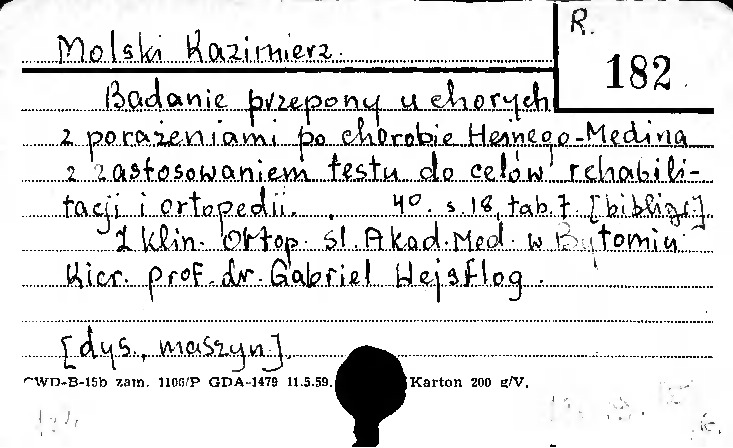 R.
182
Molski Kazimierz.
Badanie przepony u chorych
z porażeniami po chorobie Heinego-Medina
z zastosowaniem testu do celów rehabili-
tacji i ortopedii. 4°. s. 18, tab. 7 [bibligr.].
Z Klin. Ortop. Śl. Akad. Med. w Bytomiu
Kier. prof. dr. Gabriel Wejsflog.
[dys., maszyn.].
CWD-B-15b zam. 1106/P GDA-1479 11.5.59. Karton 200 g/V.